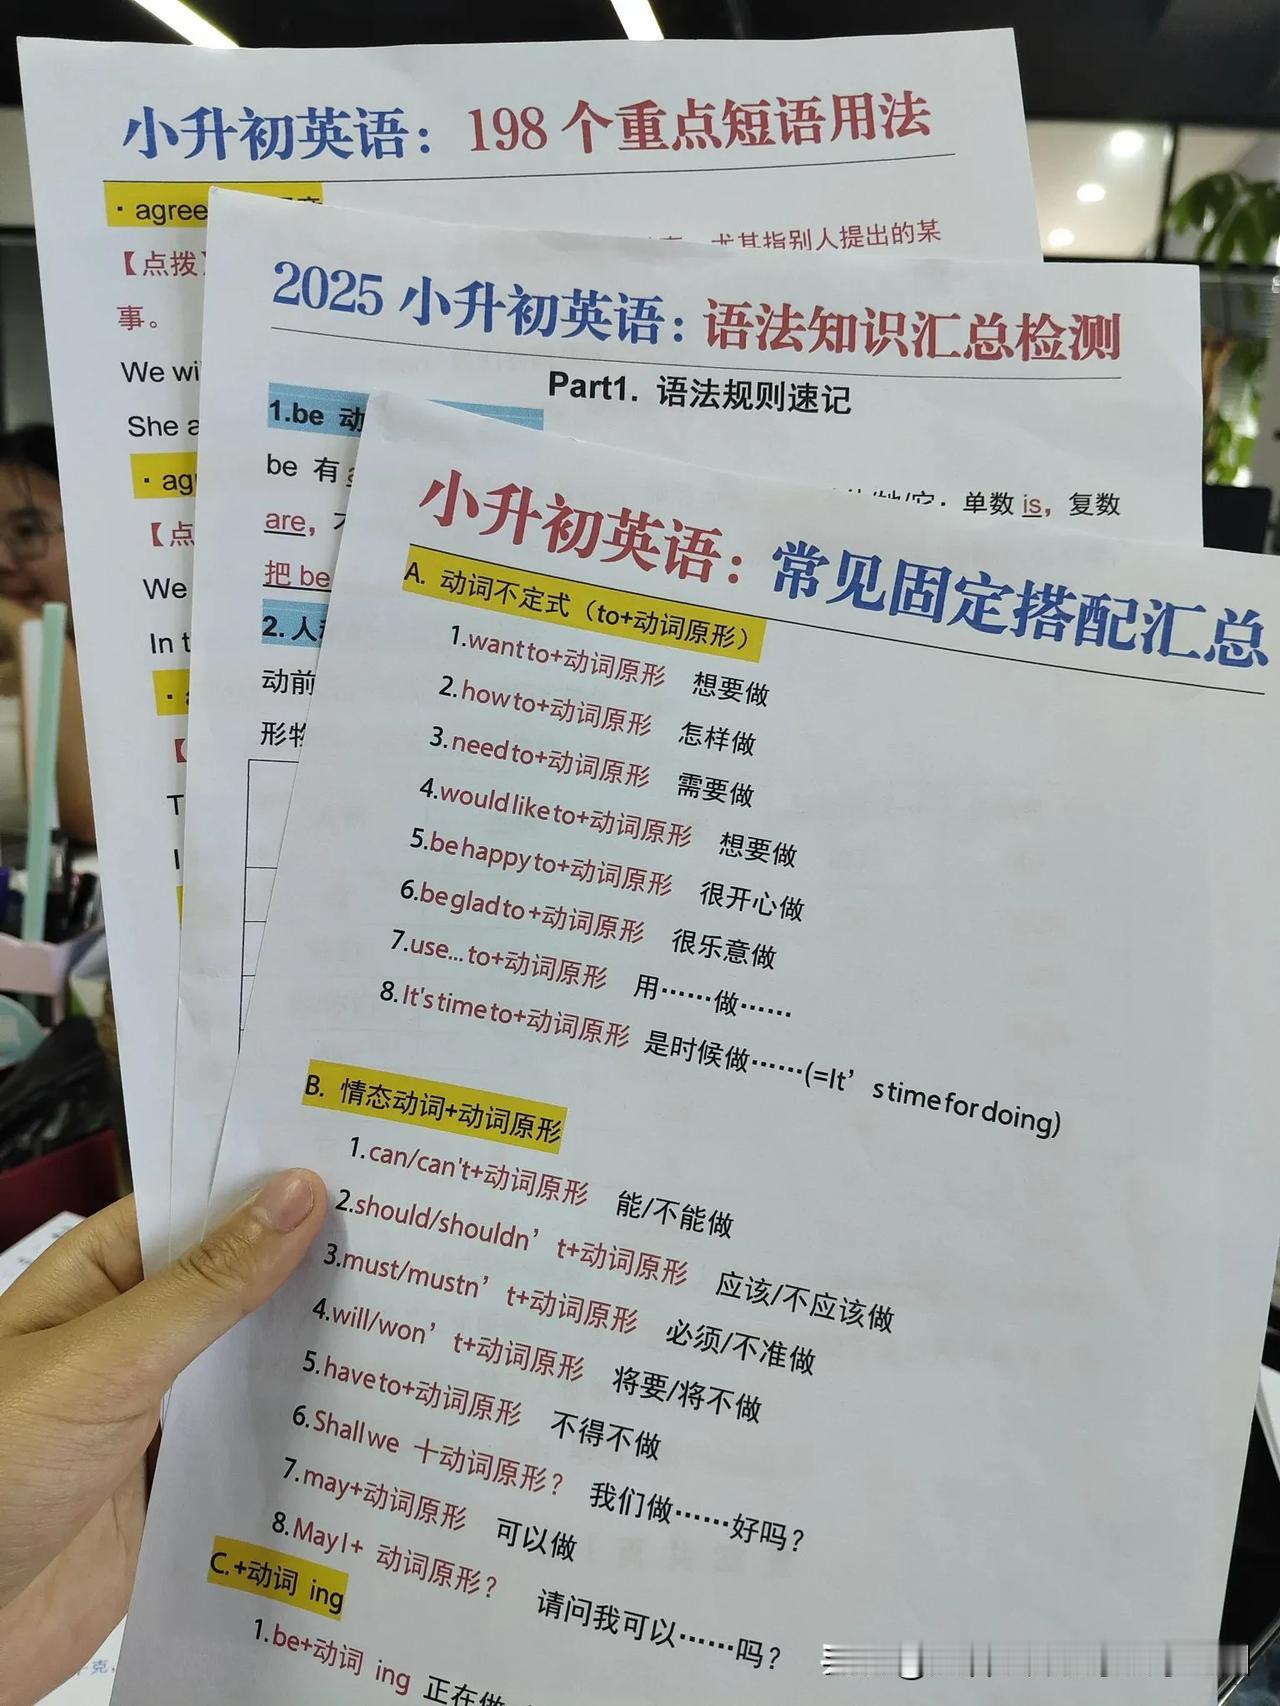 小升初英语：198个重点短语用法
· agree
【点拨】
尤其指别人提出的某
事。
We
She
【点
We
In
2025 小升初英语：语法知识汇总检测
Part1. 语法规则速记
1.be 动
be 有
单数 is，复数
are，
把 be
2. 人
动前
形物
小升初英语：常见固定搭配汇总
A. 动词不定式（to+动词原形）
1.want to+动词原形 想要做
2.how to+动词原形 怎样做
3.need to+动词原形 需要做
4.would like to+动词原形 想要做
5.be happy to+动词原形 很开心做
6.be glad to +动词原形 很乐意做
7.use... to+动词原形 用……做……
8.It's time to+动词原形 是时候做……(=It’s time for doing)
B. 情态动词+动词原形
1.can/can't+动词原形 能/不能做
2.should/shouldn’t+动词原形 应该/不应该做
3.must/mustn’t+动词原形 必须/不准做
4.will/won’t+动词原形 将要/将不做
5.have to+动词原形 不得不做
6.Shall we 十动词原形？ 我们做……好吗？
7.may+动词原形 可以做
8.May I+ 动词原形？ 请问我可以……吗？
C.+动词 ing
1.be+动词 ing 正在做